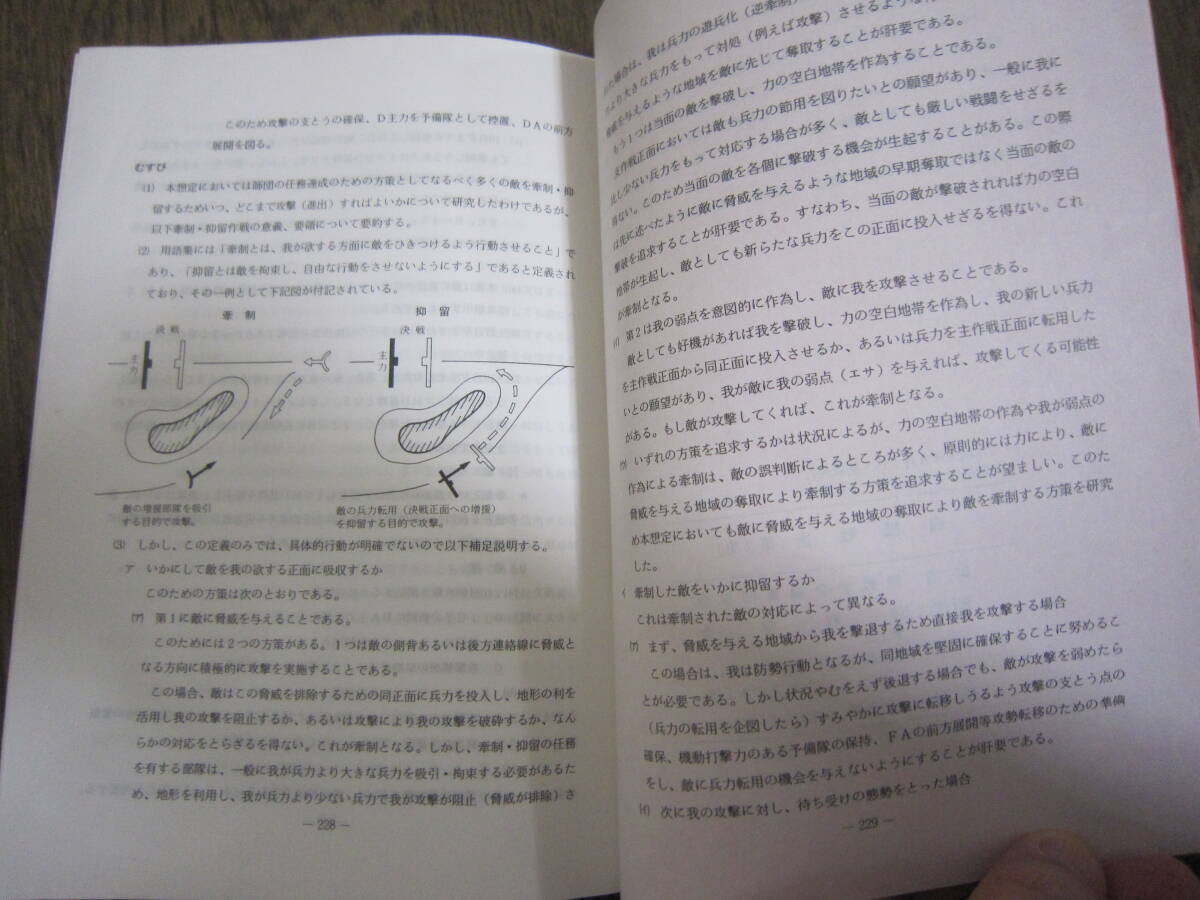 このため攻撃の支とうの確保、D主力を予備隊として控置、DAの前方
展開を図る。
むすび
(1) 本想定においては師団の任務達成のための方策としてなるべく多くの敵を牽制・抑
留するためいつ、どこまで攻撃（進出）すればよいかについて研究したわけであるが、
以下牽制・抑留作戦の意義、要領について要約する。
(2) 用語集には「牽制とは、我が欲する方面に敵をひきつけるよう行動させること」で
あり、「抑留とは敵を拘束し、自由な行動をさせないようにする」であると定義され
ており、その一例として下記図が付記されている。
牽制
抑留
決戦
主力
決戦
主力
敵の増援部隊を吸引
する目的で攻撃。
敵の兵力転用（決戦正面への増援）
を抑留する目的で攻撃。
(3) しかし、この定義のみでは、具体的行動が明確でないので以下補足説明する。
ア いかにして敵を我の欲する正面に吸収するか
このための方策は次のとおりである。
(ア) 第1に敵に脅威を与えることである。
このためには2つの方策がある。1つは敵の側背あるいは後方連絡線に脅威と
なる方向に積極的に攻撃を実施することである。
この場合、敵はこの脅威を排除するための同正面に兵力を投入し、地形の利を
活用し我の攻撃を阻止するか、あるいは攻撃により我の攻撃を破砕するか、なん
らかの対応をとらざるを得ない。これが牽制となる。しかし、牽制・抑留の任務
を有する部隊は、一般に我が兵力より大きな兵力を吸引・拘束する必要があるた
め、地形を利用し、我が兵力より少ない兵力で我が攻撃が阻止（脅威が排除）さ
— 228 —
場合は、我は兵力の遊兵化（逆牽制）
より大きな兵力をもって対処（例えば攻撃）させるような
脅威を与えるような地域を敵に先じて奪取することが肝要である。
もう1つは当面の敵を撃破し、力の空白地帯を作為することである。
支作戦正面においては敵も兵力の節用を図りたいとの願望があり、一般に我に
比し少ない兵力をもって対応する場合が多く、敵としても厳しい戦闘をせざるを
得ない。このため当面の敵を各個に撃破する機会が生起することがある。この際
は先に述べたように敵に脅威を与えるような地域の早期奪取ではなく当面の敵の
撃破を追求することが肝要である。すなわち、当面の敵が撃破されれば力の空白
地帯が生起し、敵としても新らたな兵力をこの正面に投入せざるを得ない。これ
が牽制となる。
(イ) 第2は我の弱点を意図的に作為し、敵に我を攻撃させることである。
敵としても好機があれば我を撃破し、力の空白地帯を作為し、我の新しい兵力
を主作戦正面から同正面に投入させるか、あるいは兵力を主作戦正面に転用した
いとの願望があり、我が敵に我の弱点（エサ）を与えれば、攻撃してくる可能性
がある。もし敵が攻撃してくれば、これが牽制となる。
(ウ) いずれの方策を追求するかは状況によるが、力の空白地帯の作為や我が弱点の
作為による牽制は、敵の誤判断によるところが多く、原則的には力により、敵に
脅威を与える地域の奪取により牽制する方策を追求することが望ましい。このた
め本想定においても敵に脅威を与える地域の奪取により敵を牽制する方策を研究
した。
イ 牽制した敵をいかに抑留するか
これは牽制された敵の対応によって異なる。
(ア) まず、脅威を与える地域から我を撃退するため直接我を攻撃する場合
この場合は、我は防勢行動となるが、同地域を堅固に確保することに努めるこ
とが必要である。しかし状況やむをえず後退する場合でも、敵が攻撃を弱めたら
（兵力の転用を企図したら）すみやかに攻撃に転移しうるよう攻撃の支とう点の
確保、機動打撃力のある予備隊の保持、FAの前方展開等攻勢転移のための準備
をし、敵に兵力転用の機会を与えないようにすることが肝要である。
(イ) 次に我の攻撃に対し、待ち受けの態勢をとった場合
— 229 —